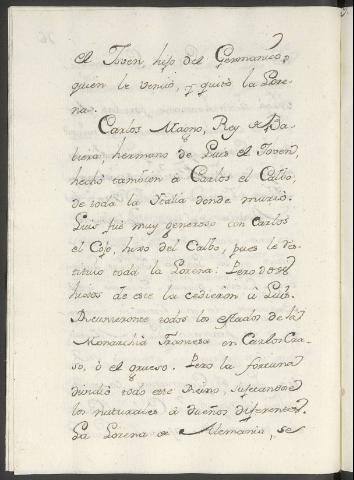 el Joven, hijo del Germanico,
quien le venció, y quitó la Lore-
na.
Carlos Magno, Rey de Ba-
biera, hermano de Luis el Joven,
hechó tambien à Carlos el Calbo,
de toda la Ytalia donde murió.
Luis fue muy generoso con Carlos
el Cojo, hixo del Calbo, pues le
toda la Lorena: Pero dos
hixos de este la cedieron à Luis.
Recurrieronse todos los estados de la
Monarchia Francesa en Carlos Cra-
so, ò el grueso. Pero la fortuna
dividió todo este Reino, sugetandose
los naturales à dueños diferentes.
La Lorena de Alemania, se